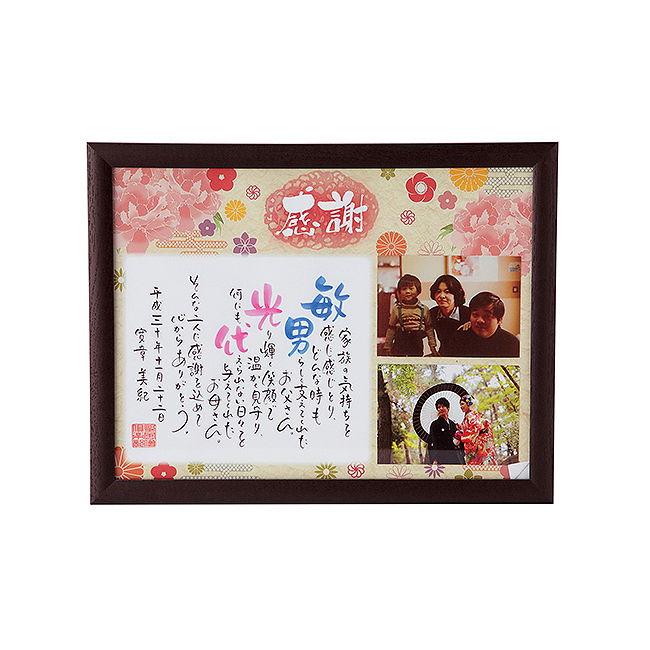 感謝
家族の気持ちを
敏感に感じとり、
どんな時も
男らしく支えてくれた
お父さん。
光り輝く笑顔で
温かく見守り、
何にも
代えられない日々を
与えてくれた
お母さん。
そんな二人に感謝を込めて
心からありがとう。
平成三十年十一月二十二日
美紀